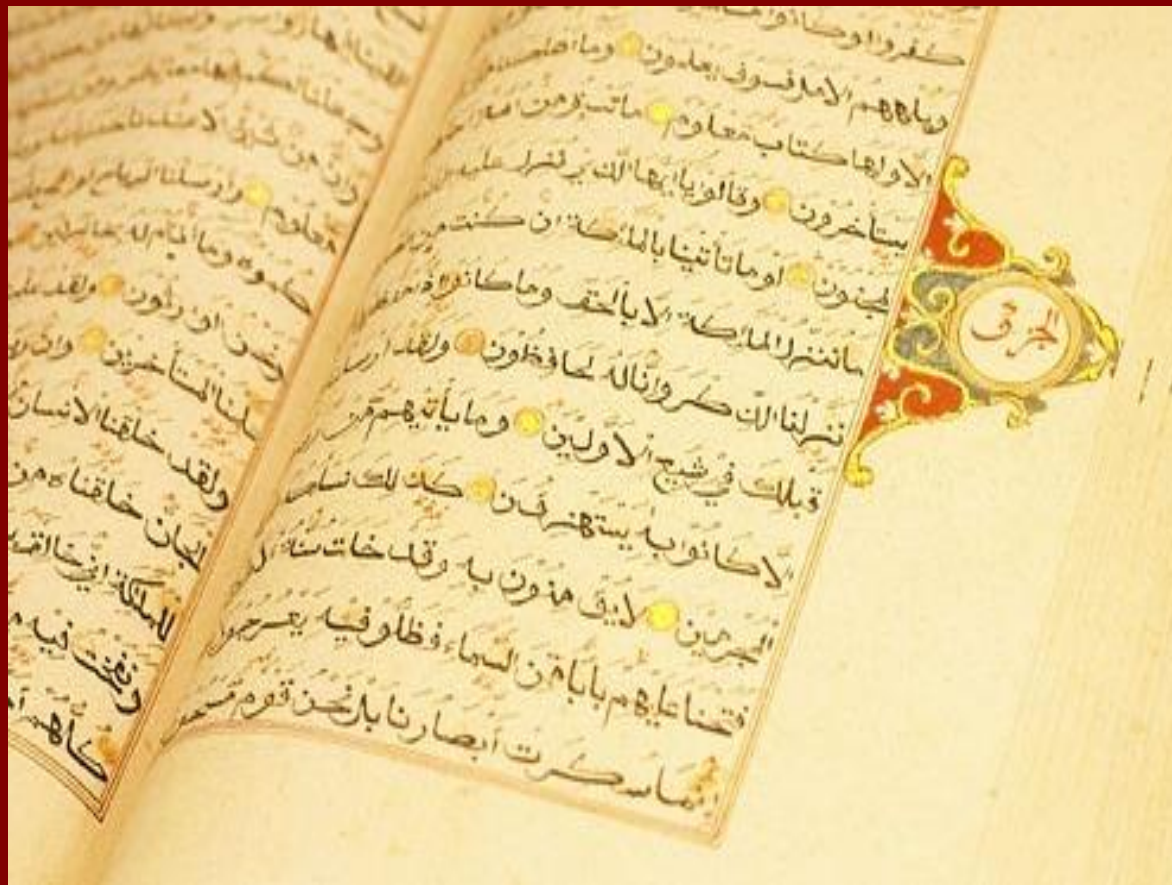 كفروا لو كانوا
ويلههم الامل فسوف يعلمون وما
الا ولها كتاب معلوم ما تسبق من امة
يستأخرون وقالوا يا ايها الذي نزل عليه
لمجنون لو ما تأتينا بالملائكة ان كنت من
ما ننزل الملائكة الا بالحق وما كانوا اذا
نزلنا الذكر وانا له لحافظون ولقد ارسلنا
قبلك في شيع الاولين وما يأتيهم من
الا كانوا به يستهزؤن كذلك
المجرمين لا يؤمنون به وقد خلت سنة
فتحنا عليهم بابا من السماء فظلوا فيه يعرجون
انما سكرت أبصارنا بل نحن قوم
وجعلنا لكم فيها معايش
وان من شيء الا عندنا
معلوم وارسلنا الرياح
وما انتم له بخازنين
ونحن الوارثون ولقد
المستأخرين وان
ولقد خلقنا الانسان
والجان خلقناه من
للملائكة اني خالق
ونفخت فيه
كلهم